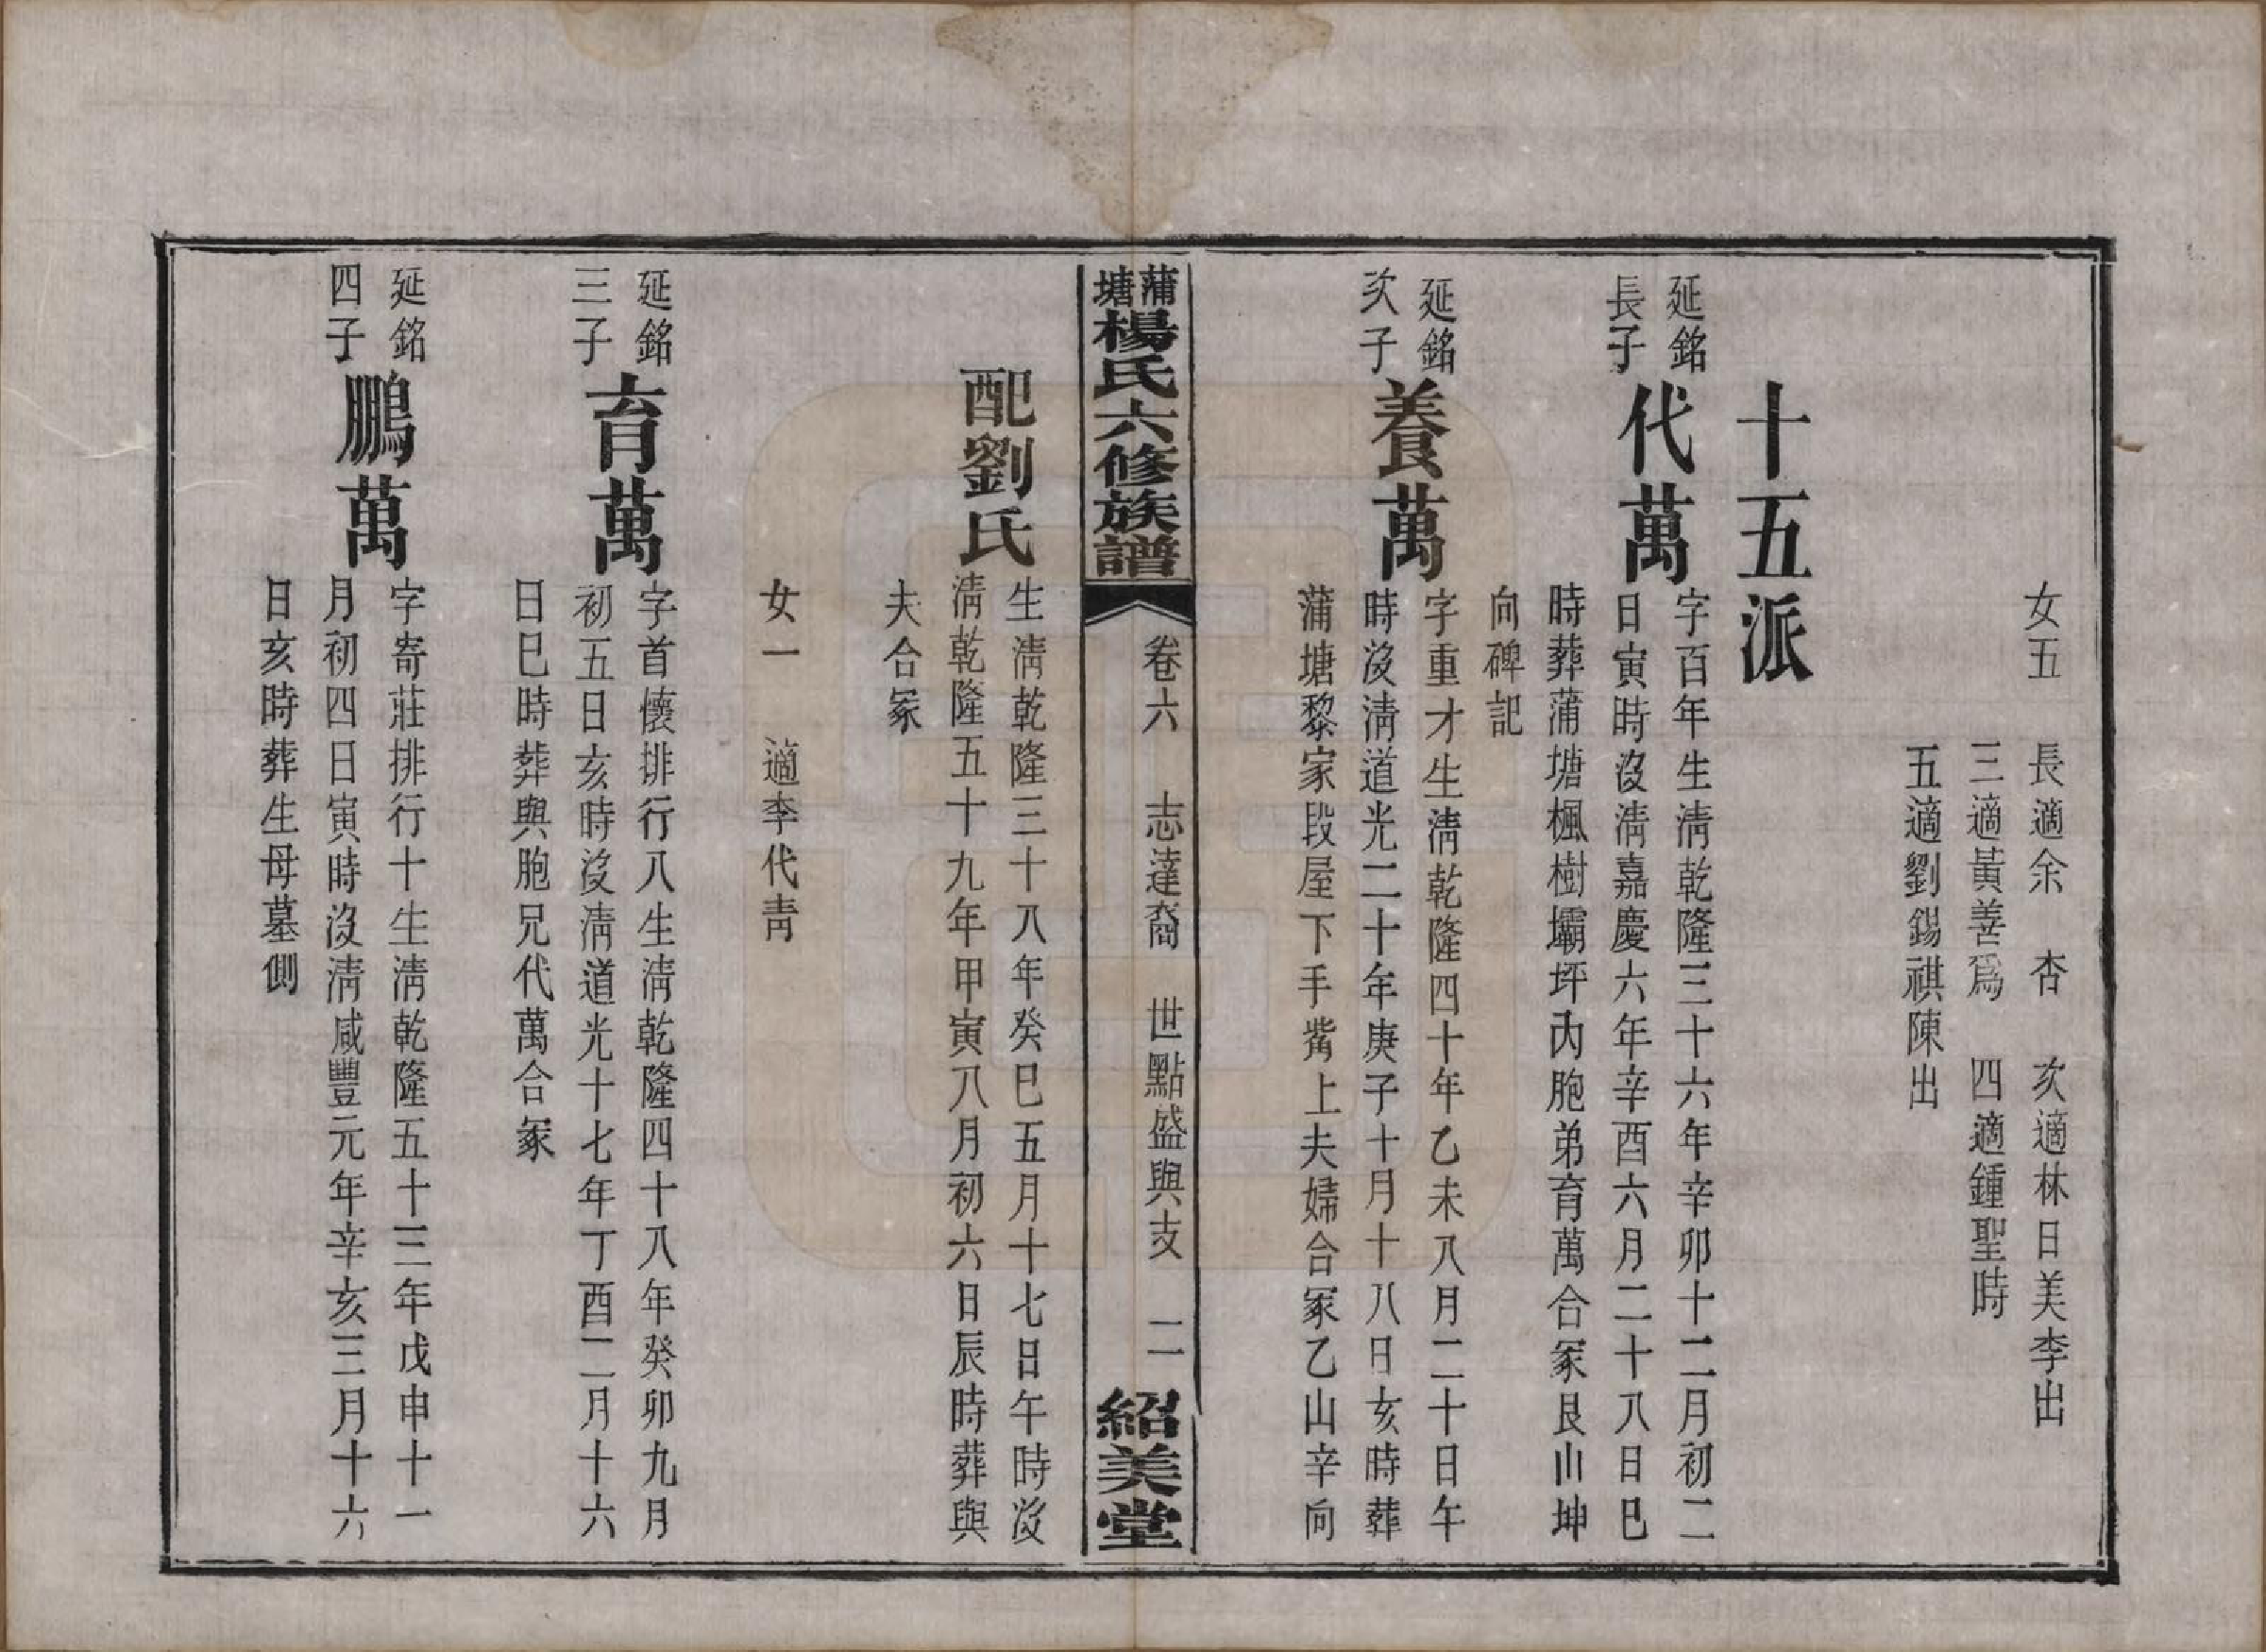 女五　長適余　杏　次適林日美李出
三適黃善爲　四適鍾聖時
五適劉錫祺陳出
十五派
延銘
長子
代萬
字百年生淸乾隆三十六年辛卯十二月初二
日寅時沒淸嘉慶六年辛酉六月二十八日巳
時葬蒲塘楓樹壩坪內胞弟育萬合冢艮山坤
向碑記
延銘
次子
養萬
字重才生淸乾隆四十年乙未八月二十日午
時沒淸道光二十年庚子十月十八日亥時葬
蒲塘黎家段屋下手嘴上夫婦合冢乙山辛向
蒲塘楊氏六修族譜
卷六　志達裔　世點盛與支　二
紹美堂
配劉氏
生淸乾隆三十八年癸巳五月十七日午時沒
淸乾隆五十九年甲寅八月初六日辰時葬與
夫合冢
女一　適李代靑
延銘
三子
育萬
字首懷排行八生淸乾隆四十八年癸卯九月
初五日亥時沒淸道光十七年丁酉二月十六
日巳時葬與胞兄代萬合冢
延銘
四子
鵬萬
字寄莊排行十生淸乾隆五十三年戊申十一
月初四日寅時沒淸咸豐元年辛亥三月十六
日亥時葬生母墓側